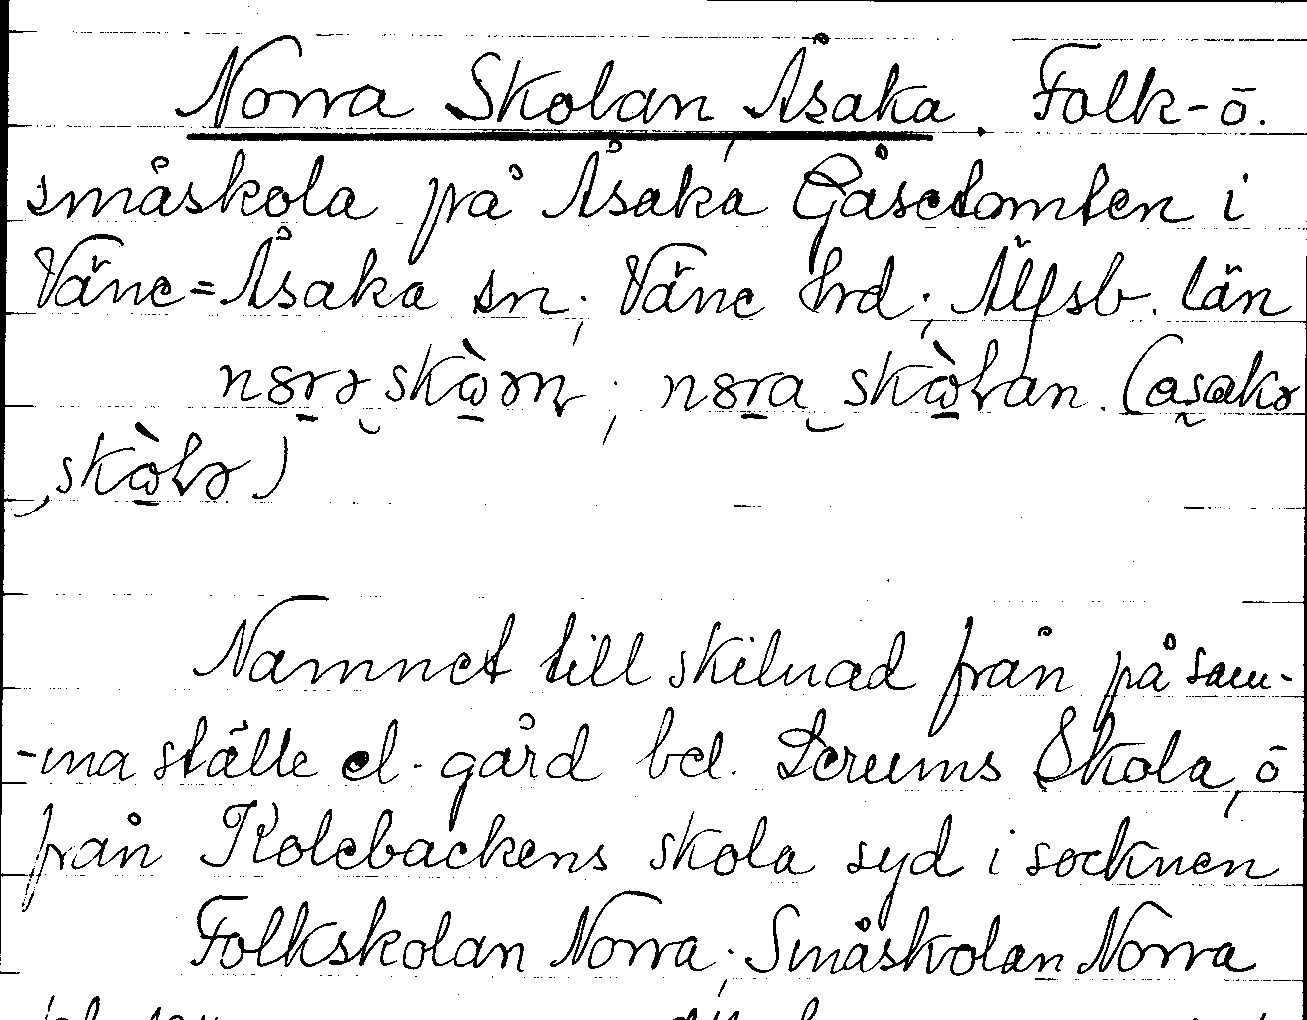 Norra Skolan, Åsaka. Folk- ō.
småskola på Åsaka Gåsetomten i
Väne=Åsaka sn; Väne hrd; Älfsb. län
Namnet till skilnad från på sam-
-ma ställe el. gård bel. Lerums Skola, ō
från Kolebackens skola syd i socknen
Folkskolan Norra; Småskolan Norra